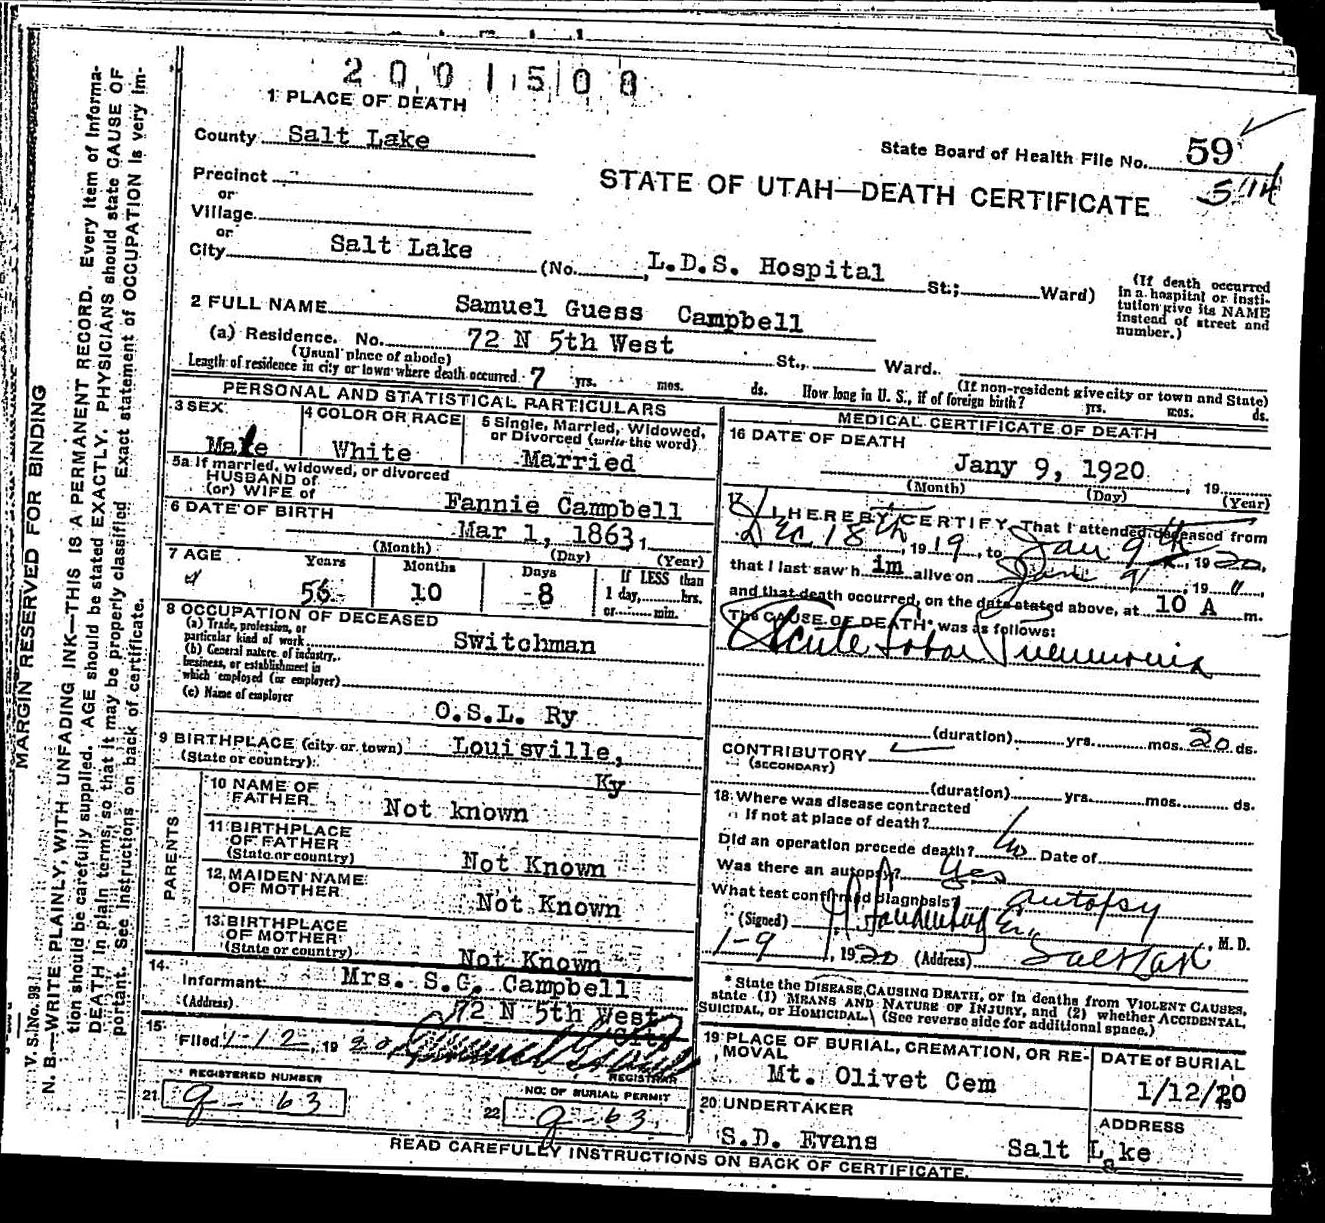 2001508
1 PLACE OF DEATH
County Salt Lake
State Board of Health File No. 59
Precinct
or
STATE OF UTAH—DEATH CERTIFICATE
Village
or
City Salt Lake (No. L.D.S. Hospital St.; Ward)
(If death occurred in a hospital or institution give its NAME instead of street and number.)
2 FULL NAME Samuel Guess Campbell
(a) Residence. No. 72 N 5th West St., Ward.
(Usual place of abode)
(If non-resident give city or town and State)
Length of residence in city or town where death occurred 7 yrs. mos. ds. How long in U. S., if of foreign birth? yrs. mos. ds.
PERSONAL AND STATISTICAL PARTICULARS
3 SEX
Male
4 COLOR OR RACE
White
5 Single, Married, Widowed, or Divorced (write the word)
Married
5a If married, widowed, or divorced
HUSBAND of
(or) WIFE of
Fannie Campbell
6 DATE OF BIRTH
Mar 1, 1863,
(Month) (Day) (Year)
7 AGE Years Months Days If LESS than
56 10 8 1 day, hrs.
or min.
8 OCCUPATION OF DECEASED
(a) Trade, profession, or
particular kind of work Switchman
(b) General nature of industry,
business, or establishment in
which employed (or employer)
(c) Name of employer
O.S.L. Ry
9 BIRTHPLACE (city or town) Louisville,
(State or country) Ky
PARENTS
10 NAME OF
FATHER Not known
11 BIRTHPLACE
OF FATHER
(State or country) Not Known
12 MAIDEN NAME
OF MOTHER Not Known
13 BIRTHPLACE
OF MOTHER
(State or country) Not Known
14.
Informant Mrs. S.G. Campbell
(Address) 72 N 5th West
15
Filed 1-12, 1920
REGISTRAR
REGISTERED NUMBER
21 9-63
NO. OF BURIAL PERMIT
22 9-63
MEDICAL CERTIFICATE OF DEATH
16 DATE OF DEATH
Jany 9, 1920, 19
(Month) (Day) (Year)
17 I HEREBY CERTIFY, That I attended deceased from
Dec 18th, 1919, to Jan 9th, 1920,
that I last saw him alive on Jan 9, 19 ",
and that death occurred, on the date stated above, at 10 A m.
The CAUSE OF DEATH* was as follows:
Acute Lobar Pneumonia
(duration) yrs. mos. 20 ds.
CONTRIBUTORY
(SECONDARY)
(duration) yrs. mos. ds.
18 Where was disease contracted
If not at place of death?
Did an operation precede death? No Date of
Was there an autopsy? Yes
What test confirmed diagnosis? autopsy
(Signed) , M. D.
1-9, 1920 (Address) Salt Lake
*State the DISEASE CAUSING DEATH, or in deaths from VIOLENT CAUSES,
state (1) MEANS AND NATURE OF INJURY, and (2) whether ACCIDENTAL,
SUICIDAL, or HOMICIDAL. (See reverse side for additional space.)
19 PLACE OF BURIAL, CREMATION, OR REMOVAL
Mt. Olivet Cem
DATE of BURIAL
1/12/20
20 UNDERTAKER
S.D. Evans
ADDRESS
Salt Lake
READ CAREFULLY INSTRUCTIONS ON BACK OF CERTIFICATE.
MARGIN RESERVED FOR BINDING
V. S. No. 99
N. B.—WRITE PLAINLY, WITH UNFADING INK—THIS IS A PERMANENT RECORD. Every item of informa-
tion should be carefully supplied. AGE should be stated EXACTLY. PHYSICIANS should state CAUSE OF
DEATH in plain terms, so that it may be properly classified. Exact statement of OCCUPATION is very im-
portant. See instructions on back of certificate.